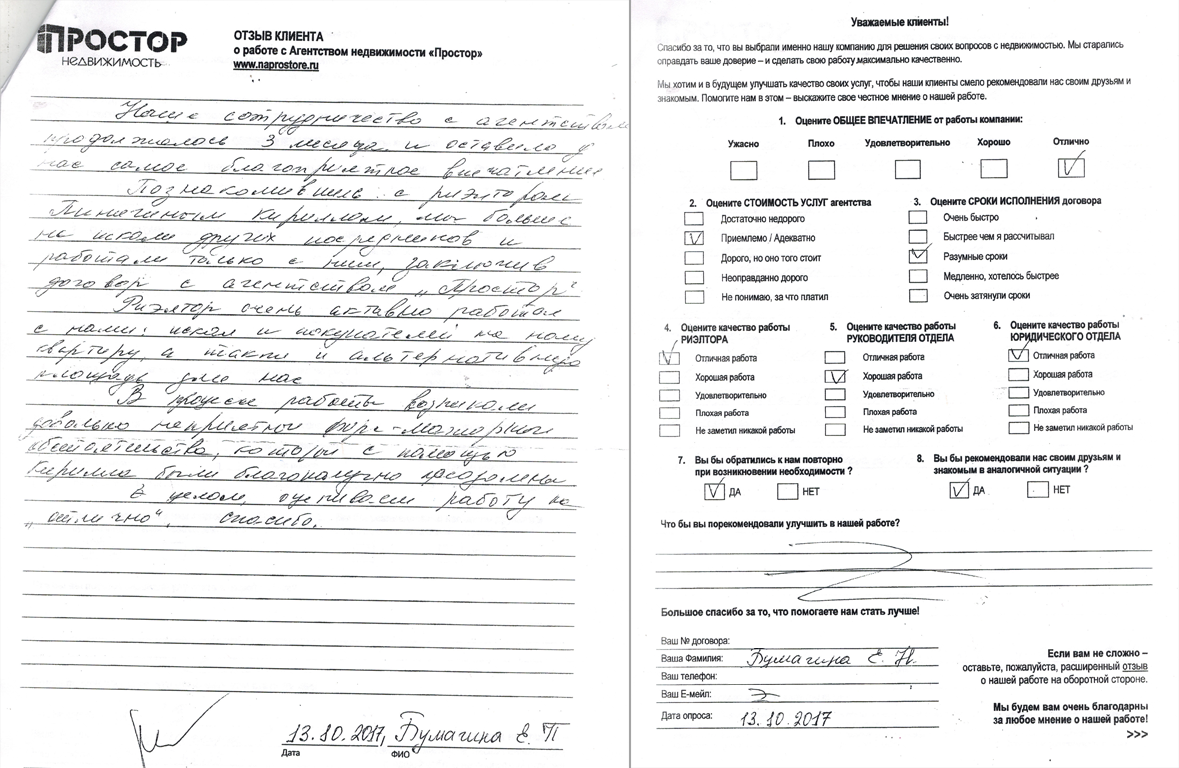 ПРОСТОР
НЕДВИЖИМОСТЬ
ОТЗЫВ КЛИЕНТА
о работе с Агентством недвижимости «Простор»
www.naprostore.ru
Наше сотрудничество с агентством
продолжалось 3 месяца и оставило у
нас самое благоприятное впечатление
Познакомившись с риэлтором
Кириллом, мы больше
не искали других и
работали только с ним, заключив
договор с агентством „Простор“.
Риэлтор очень активно работал
с нами: искал и покупателей на нашу
квартиру, а также и альтернативную
площадь для нас
В процессе работы возникали
довольно неприятные форс-мажорные
обстоятельства, которые с помощью
Кирилла были благополучно преодолены
В целом, оцениваем работу на
„отлично“, спасибо.
13.10.2017, Бумагина Е. П
Дата
ФИО
Уважаемые клиенты!
Спасибо за то, что вы выбрали именно нашу компанию для решения своих вопросов с недвижимостью. Мы старались
оправдать ваше доверие – и сделать свою работу максимально качественно.
Мы хотим и в будущем улучшать качество своих услуг, чтобы наши клиенты смело рекомендовали нас своим друзьям и
знакомым. Помогите нам в этом – выскажите свое честное мнение о нашей работе.
1. Оцените ОБЩЕЕ ВПЕЧАТЛЕНИЕ от работы компании:
Ужасно Плохо Удовлетворительно Хорошо Отлично
2. Оцените СТОИМОСТЬ УСЛУГ агентства
Достаточно недорого
Приемлемо / Адекватно
Дорого, но оно того стоит
Неоправданно дорого
Не понимаю, за что платил
3. Оцените СРОКИ ИСПОЛНЕНИЯ договора
Очень быстро
Быстрее чем я рассчитывал
Разумные сроки
Медленно, хотелось быстрее
Очень затянули сроки
4. Оцените качество работы
РИЭЛТОРА
Отличная работа
Хорошая работа
Удовлетворительно
Плохая работа
Не заметил никакой работы
5. Оцените качество работы
РУКОВОДИТЕЛЯ ОТДЕЛА
Отличная работа
Хорошая работа
Удовлетворительно
Плохая работа
Не заметил никакой работы
6. Оцените качество работы
ЮРИДИЧЕСКОГО ОТДЕЛА
Отличная работа
Хорошая работа
Удовлетворительно
Плохая работа
Не заметил никакой работы
7. Вы бы обратились к нам повторно
при возникновении необходимости ?
ДА НЕТ
8. Вы бы рекомендовали нас своим друзьям и
знакомым в аналогичной ситуации ?
ДА НЕТ
Что бы вы порекомендовали улучшить в нашей работе?
Большое спасибо за то, что помогаете нам стать лучше!
Ваш № договора:
Ваша Фамилия: Бумагина Е. П.
Ваш телефон:
Ваш Е-мейл:
Дата опроса: 13.10.2017
Если вам не сложно –
оставьте, пожалуйста, расширенный отзыв
о нашей работе на оборотной стороне.
Мы будем вам очень благодарны
за любое мнение о нашей работе!
>>>